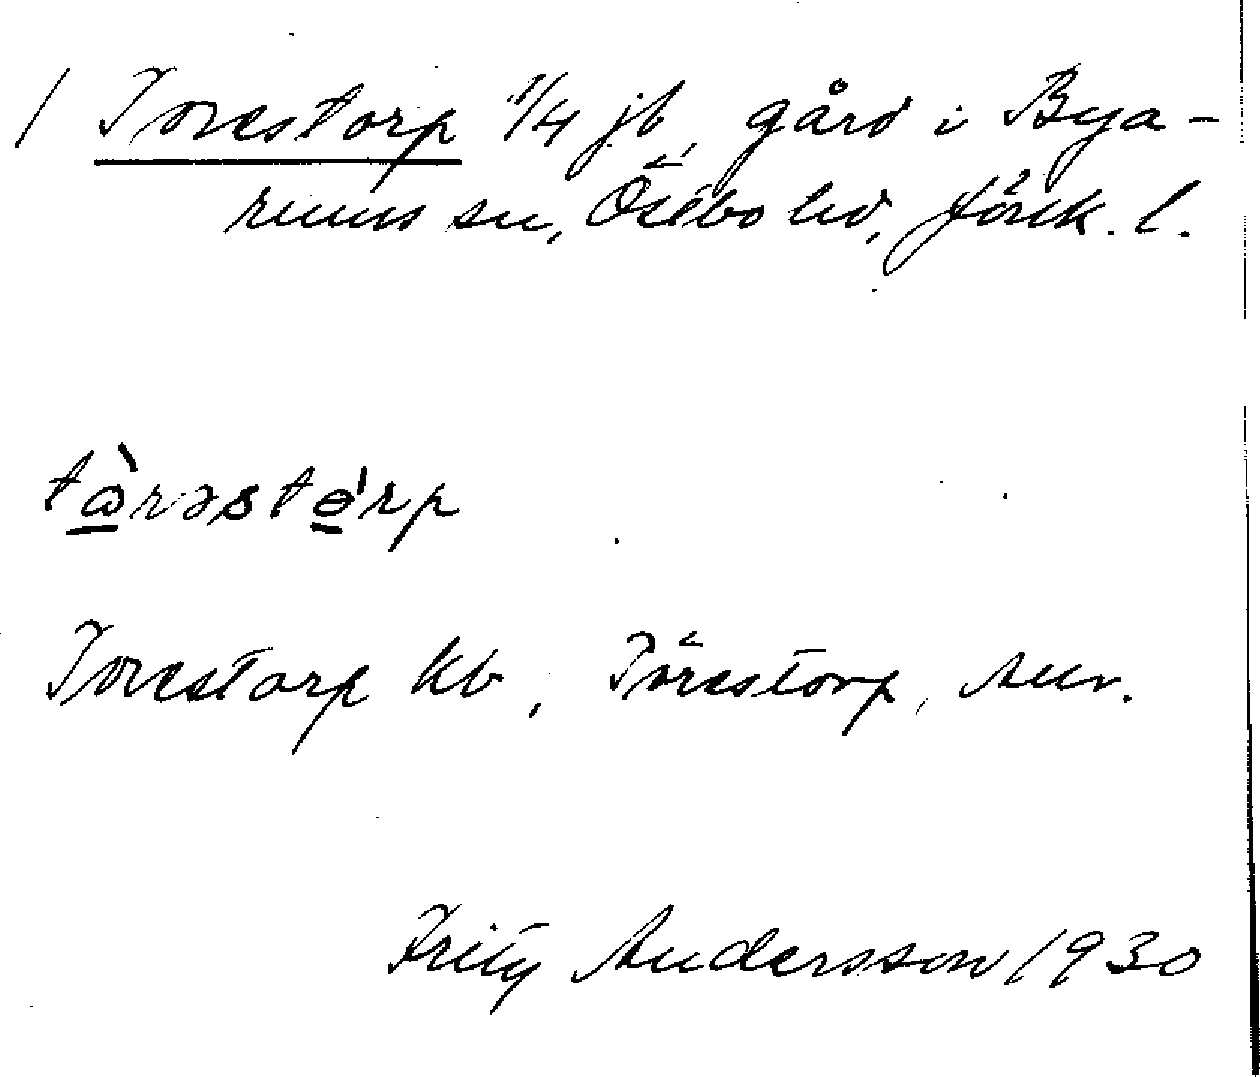 / Torestorp 1/4 jb, gård i Bya-
rums sn, Östbo hd, Jönk. l.
tòrəstórp
Torestorp kb, Törestorp, Auv.
Fritz Andersson 1930